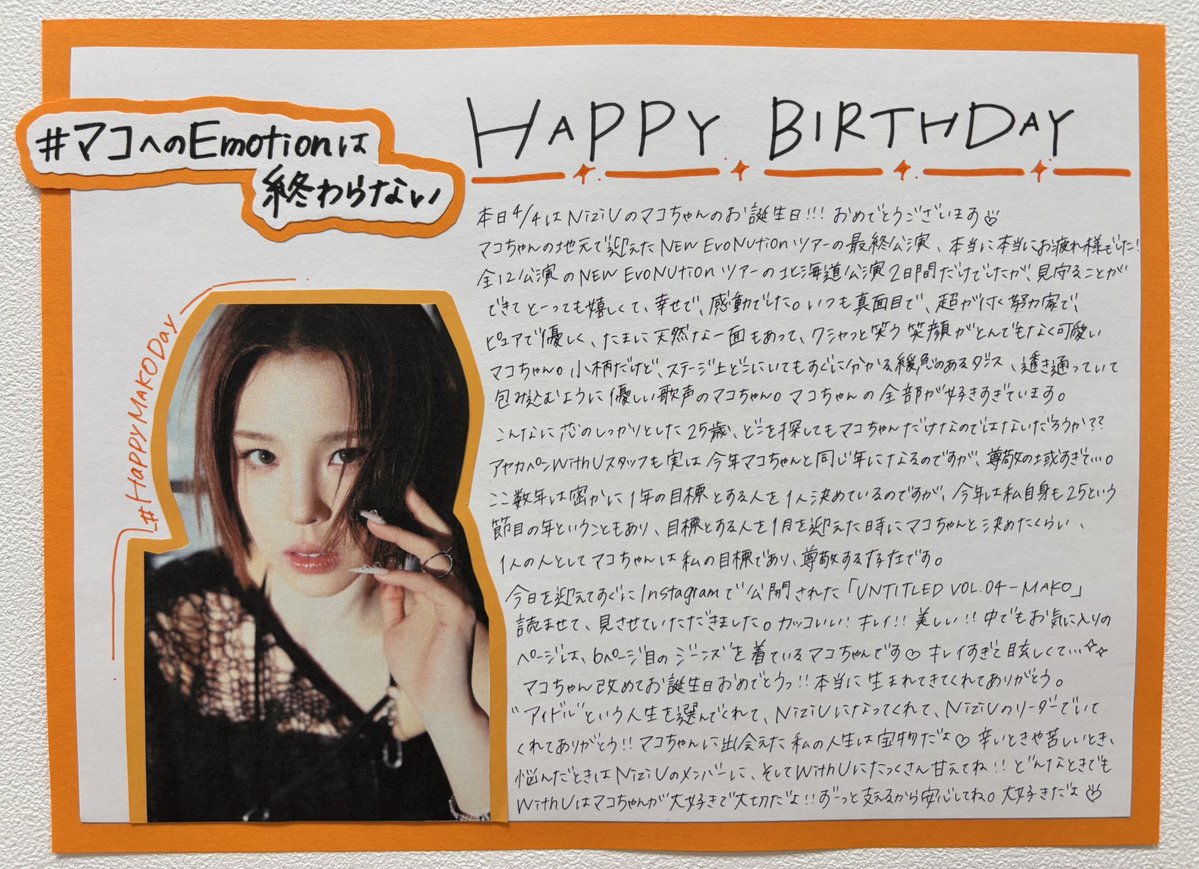 #マコへのEmotionは
終わらない
HAPPY BIRTHDAY
#HAPPYMAKODAY
本日4/4はNiziUのマコちゃんのお誕生日!!! おめでとうございます♡
マコちゃんの地元で迎えたNEW EvoNUtionツアーの最終公演、本当に本当にお疲れ様でした!
全12公演のNEW EvoNUtionツアーの北海道公演2日間だけでしたが、見守ることが
できてとーっても嬉しくて、幸せで、感動でした。いつも真面目で、超が付く努力家で、
ピュアで優しく、たまに天然な一面もあって、クシャっと笑う笑顔がとんでもなく可愛い
マコちゃん。小柄だけど、ステージ上どこにいてもすぐに分かる緩急のあるダンス、透き通っていて
包み込むように優しい歌声のマコちゃん。マコちゃんの全部が好きすぎています。
こんなに芯のしっかりとした25歳、どこを探してもマコちゃんだけなのではないだろうか??
アヤカペンWithUスタッフも実は今年マコちゃんと同じ年になるのですが、尊敬の域すぎて…。
ここ数年は密かに1年の目標とする人を1人決めているのですが、今年は私自身も25という
節目の年ということもあり、目標とする人を1月を迎えた時にマコちゃんと決めたくらい、
1人の人としてマコちゃんは私の目標であり、尊敬する存在です。
今日を迎えてすぐにInstagramで公開された「UNTITLED VOL.04-MAKO」
読ませて、見させていただきました。カッコいい! キレイ!! 美しい!! 中でもお気に入りの
ページは、6ページ目のジーンズを着ているマコちゃんです♡ キレイすぎて眩しくて…✧✧
マコちゃん改めてお誕生日おめでとうっ!! 本当に生まれてきてくれてありがとう。
"アイドル"という人生を選んでくれて、NiziUになってくれて、NiziUのリーダーでいて
くれてありがとう!! マコちゃんに出会えた私の人生は宝物だよ♡ 辛いときや苦しいとき、
悩んだときはNiziUのメンバーに、そしてWithUにたっくさん甘えてね!! どんなときでも
WithUはマコちゃんが大好きで大切だよ!! ずーっと支えるから安心してね。大好きだよ♡